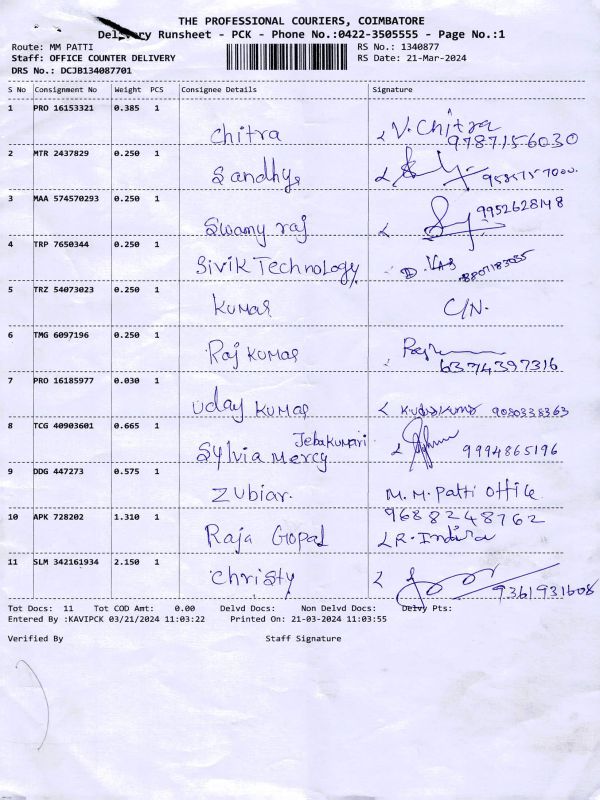 THE PROFESSIONAL COURIERS, COIMBATORE
Delivery Runsheet - PCK - Phone No.:0422-3505555 - Page No.:1
Route: MM PATTI
RS No.: 1340877
Staff: OFFICE COUNTER DELIVERY
RS Date: 21-Mar-2024
DRS No.: DCJB134087701
S No Consignment No Weight PCS Consignee Details Signature
1 PRO 16153321 0.385 1
Chitra V. Chitra
9787156030
2 MTR 2437829 0.250 1
Sandhya
3 MAA 574570293 0.250 1
Swamy raj 9952628148
4 TRP 7650344 0.250 1
Sivik Technology
5 TRZ 54073023 0.250 1
Kumar C/N.
6 TMG 6097196 0.250 1
Raj Kumar
6374397316
7 PRO 16185977 0.030 1
Uday Kumar 9080338363
8 TCG 40903601 0.665 1
Jeba Kumari
Sylvia Mercy 9994865196
9 DDG 447273 0.575 1
Zubiar. M.M. Patti Office
10 APK 728202 1.310 1 9688248762
Raja Gopal R. Indira
11 SLM 342161934 2.150 1
Christy 9361931608
Tot Docs: 11 Tot COD Amt: 0.00 Delvd Docs: Non Delvd Docs: Delvy Pts:
Entered By :KAVIPCK 03/21/2024 11:03:22 Printed On: 21-03-2024 11:03:55
Verified By Staff Signature